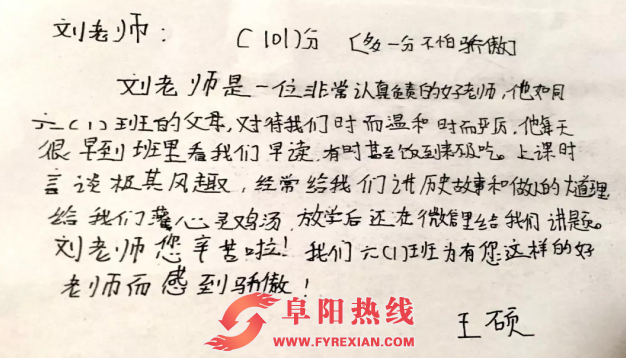 刘老师： （101）分 〔多一分不怕骄傲〕
刘老师是一位非常认真负责的好老师，他如同
六（1）班的父母，对待我们时而温和时而严厉，他每天
很早到班里看我们早读，有时甚至饭到来不及吃。上课时
言谈极其风趣，经常给我们讲历史故事和做人的大道理
给我们灌心灵鸡汤，放学后还在微信里给我们讲题。
刘老师您辛苦啦！我们六（1）班为有您这样的好
老师而感到骄傲！
阜阳热线
王硕
WWW.FYREXIAN.COM